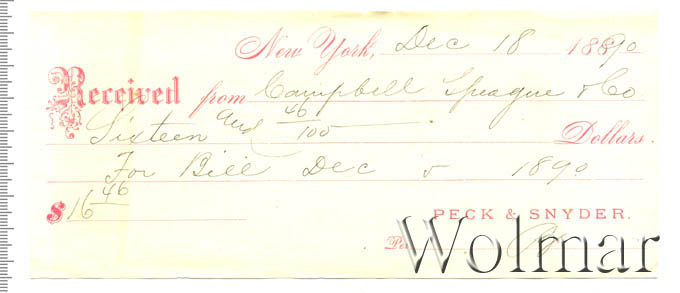 New York, Dec 18 1890
Received from Campbell Sprague & Co
Sixteen and 46/100 Dollars
For Bill Dec 5 1890
$16 46
PECK & SNYDER.
Per
Wolmar